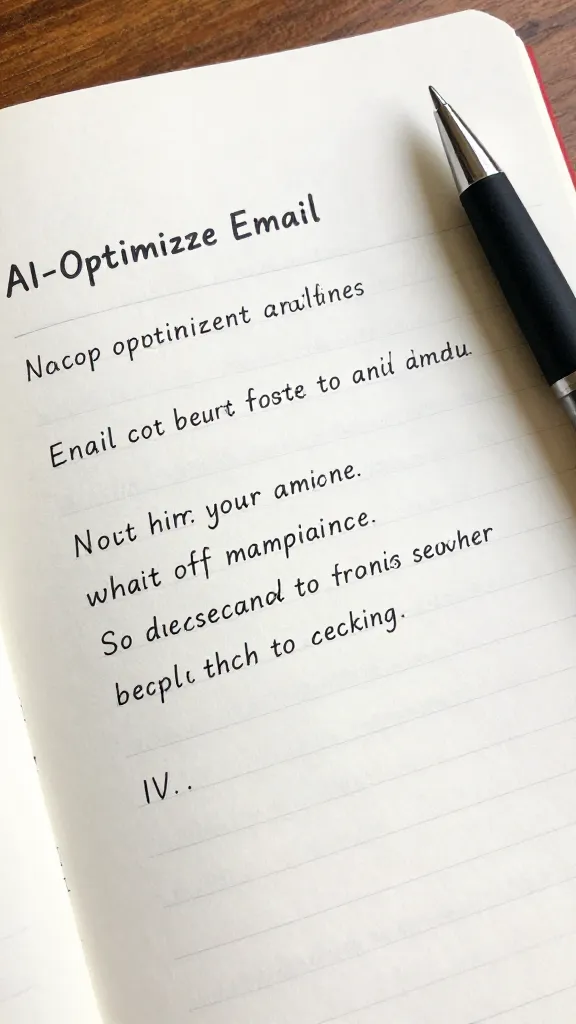 AI-Optimizze Email
Nacop opotinizent araltines
Enail cot beurt foste to anil amdu.
Noct hirr. your amione.
whait off mampiaince.
So diecsecand to fronis seuvher
becplc thch to cecking.
IV..